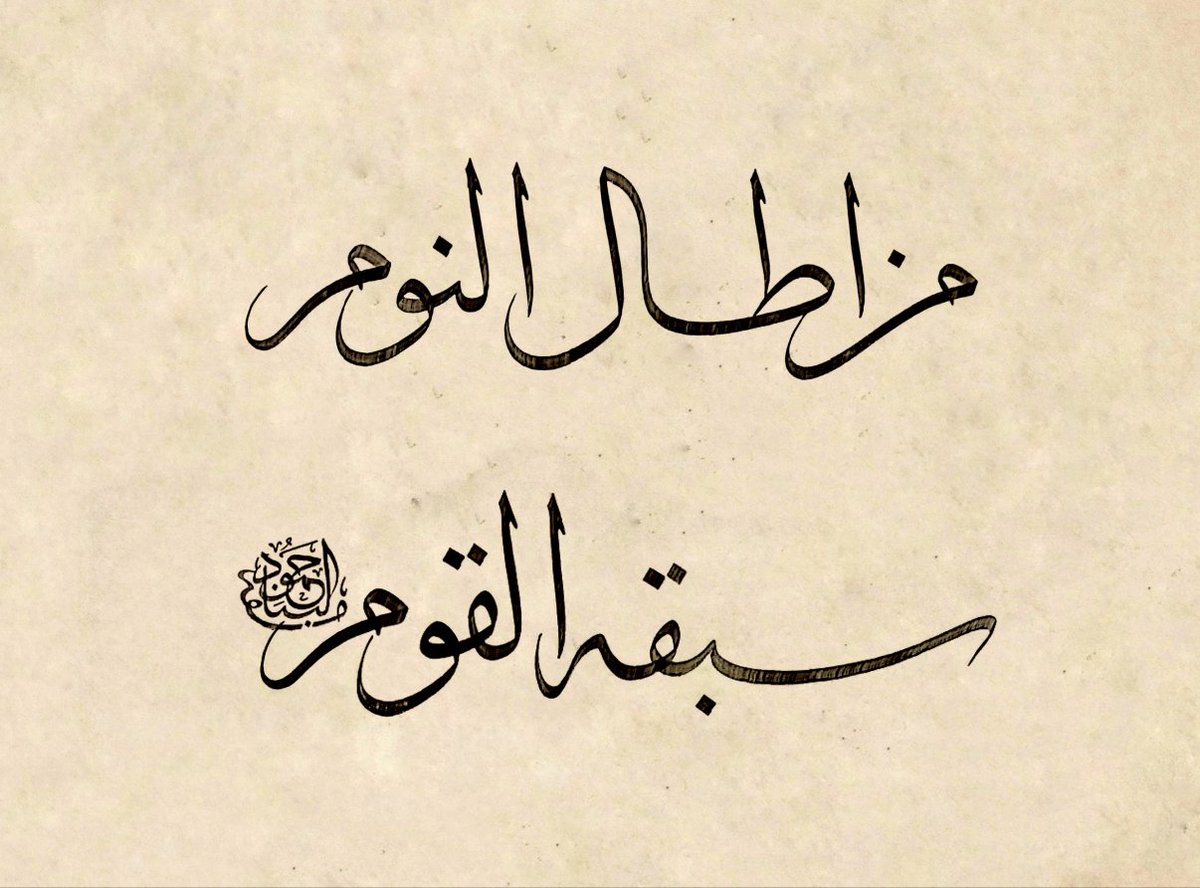 من اطال النوم
سبقه القوم